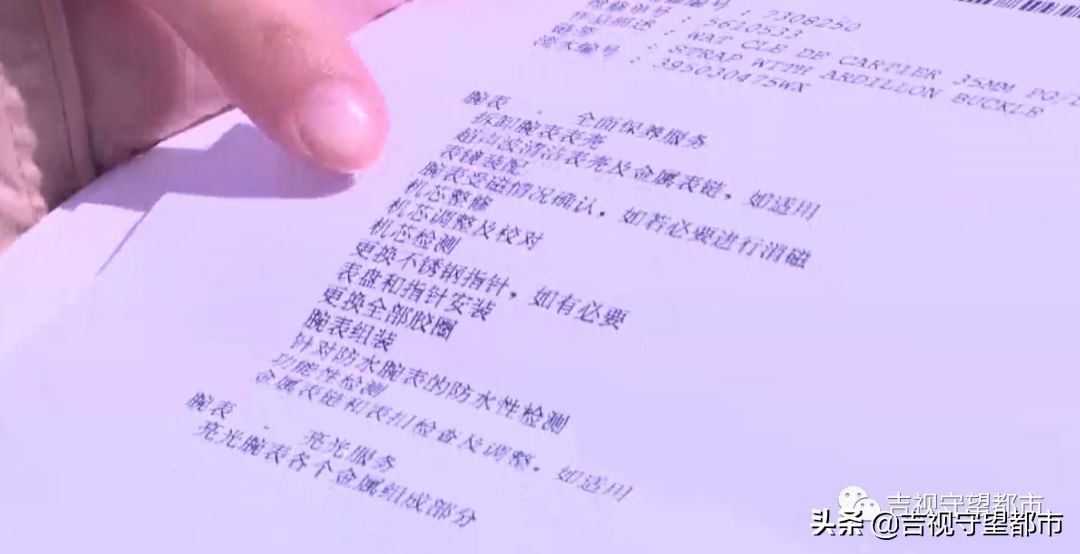 编号 : 7308250
维修钢号 : 5610533
作品描述 : WAT CLE DE CARTIER 35MM PO/
链带 : STRAP WITH ARDILLON BUCKLE
流水编号 : 395030475WX
腕表 - 全面保养服务
拆卸腕表表壳
超声波清洁表壳及金属表链，如适用
表镜装配
腕表受磁情况确认，如若必要进行消磁
机芯整修
机芯调整及校对
机芯检测
更换不锈钢指针，如有必要
表盘和指针安装
更换全部胶圈
腕表组装
针对防水腕表的防水性检测
功能性检测
金属表链和表扣检查及调整，如适用
腕表 - 亮光服务
亮光腕表各个金属组成部分
吉视守望都市
头条 @吉视守望都市